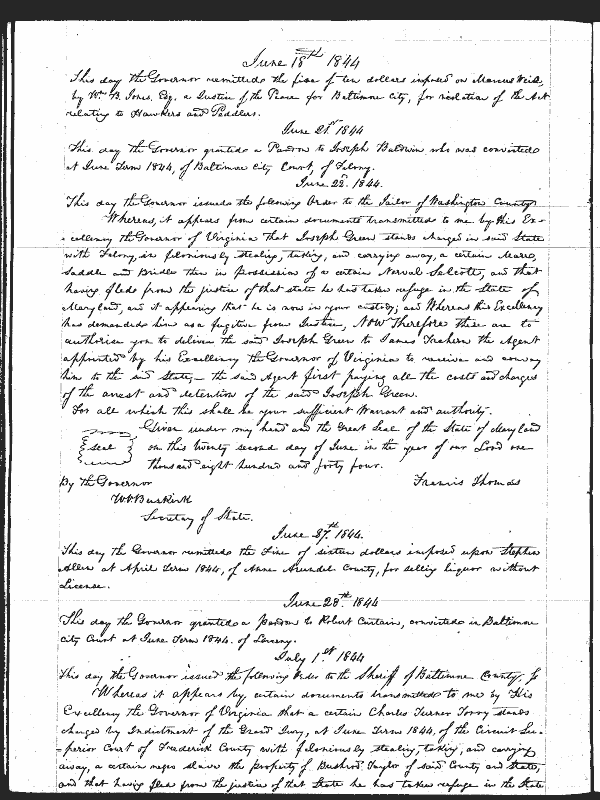 June 18th 1844
This day the Governor remitted the fine of ten dollars imposed on Marcus
by Wm. B. Jones, Esq. a Justice of the Peace for Baltimore City, for violation of the Act
relating to Hawkers and Peddlers.
June 21st 1844
This day the Governor granted a Pardon to Joseph Baldwin, who was convicted
at June Term 1844, of Baltimore City Court, of Felony.
June 22d. 1844.
This day the Governor issued the following Order to the Jailor of Washington County
Whereas, it appears from certain documents transmitted to me by His Ex-
cellency the Governor of Virginia that Joseph Green stands charged in said State
with Felony, in feloniously stealing, taking, and carrying away, a certain Mare,
Saddle and Bridle then in possession of a certain Norval and that
having fled from the justice of that state he has taken refuge in the State of
Maryland, and it appearing that he is now in your custody; and Whereas this Excellency
has demanded him as a fugitive from Justice, Now Therefore these are to
authorise you to deliver the said Joseph Green to James Trahern the Agent
appointed by his Excellency the Governor of Virginia to receive and convey
him to the said State, – the said Agent first paying all the costs and charges
of the arrest and detention of the said Joseph Green.
For all which this shall be your sufficient Warrant and authority.
Given under my hand and the Great Seal of the State of Maryland
seal
on this twenty second day of June in the year of our Lord one
thousand eight hundred and forty four.
By the Governor
Francis Thomas
Wm Van Buskirk
Secretary of State.
June 27th 1844.
This day the Governor remitted the Fine of sixteen dollars imposed upon Stephen
Allen at April Term 1844, of Anne Arundel County, for selling liquor without
License.
June 28th 1844
This day the Governor granted a pardon to Robert Curtain, convicted in Baltimore
City Court at June Term 1844. of Larceny.
July 1st 1844
This day the Governor issued the following Order to the Sheriff of Baltimore County.
Whereas it appears by certain documents transmitted to me by His
Excellency the Governor of Virginia that a certain Charles Turner Torry stands
charged by Indictment of the Grand Jury, at June Term 1844, of the Circuit Su-
-perior Court of Frederick County with feloniously stealing, taking, and carrying
away, a certain negro slave the property of Bushrod Taylor of said County and State,
and that having fled from the justice of that State he has taken refuge in the State